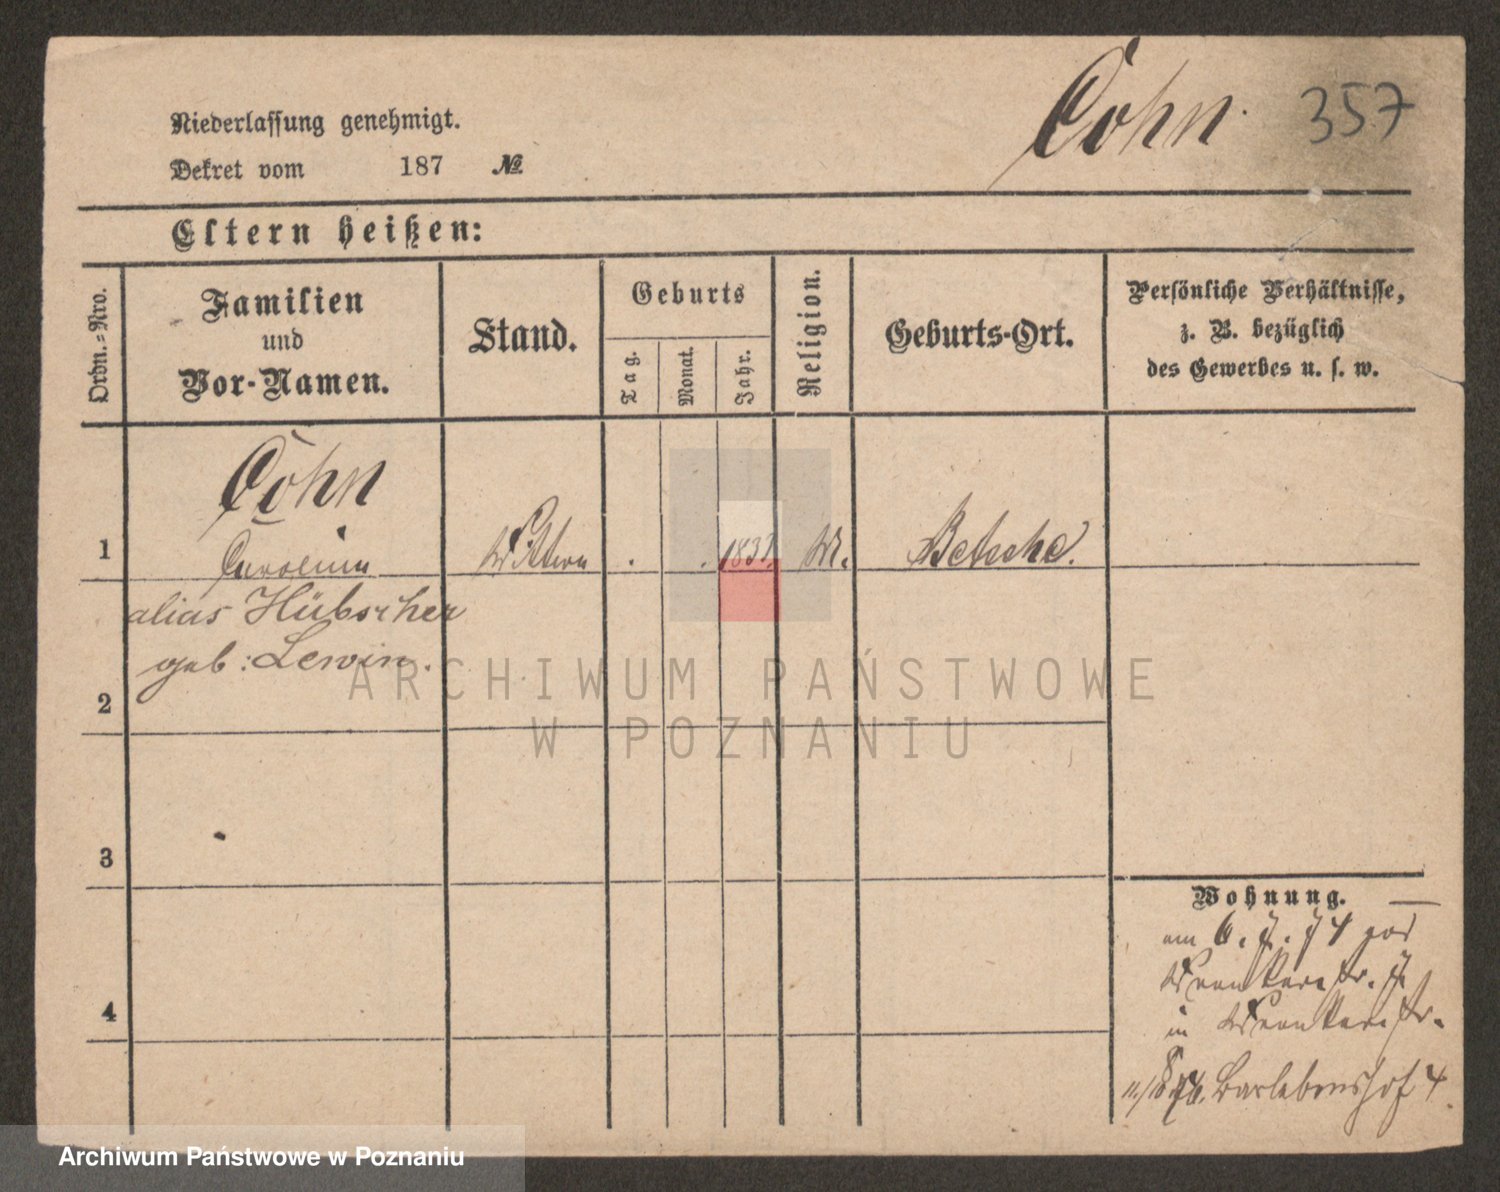 Cohn. 357
Niederlassung genehmigt.
Dekret vom 187 №
Eltern heißen:
Ordn.=Nro.
Familien
und
Vor-Namen.
Stand.
Geburts
Tag.
Monat.
Jahr.
Religion.
Geburts-Ort.
Persönliche Verhältnisse,
z. B. bezüglich
des Gewerbes u. s. w.
Cohn
1 Wittwe Betsche.
alias Hübscher
geb: Lewin.
2
3
4
Wohnung.
am 6. 7. 74
in
Barlebenshof 4
ARCHIWUM PAŃSTWOWE
W POZNANIU
Archiwum Państwowe w Poznaniu